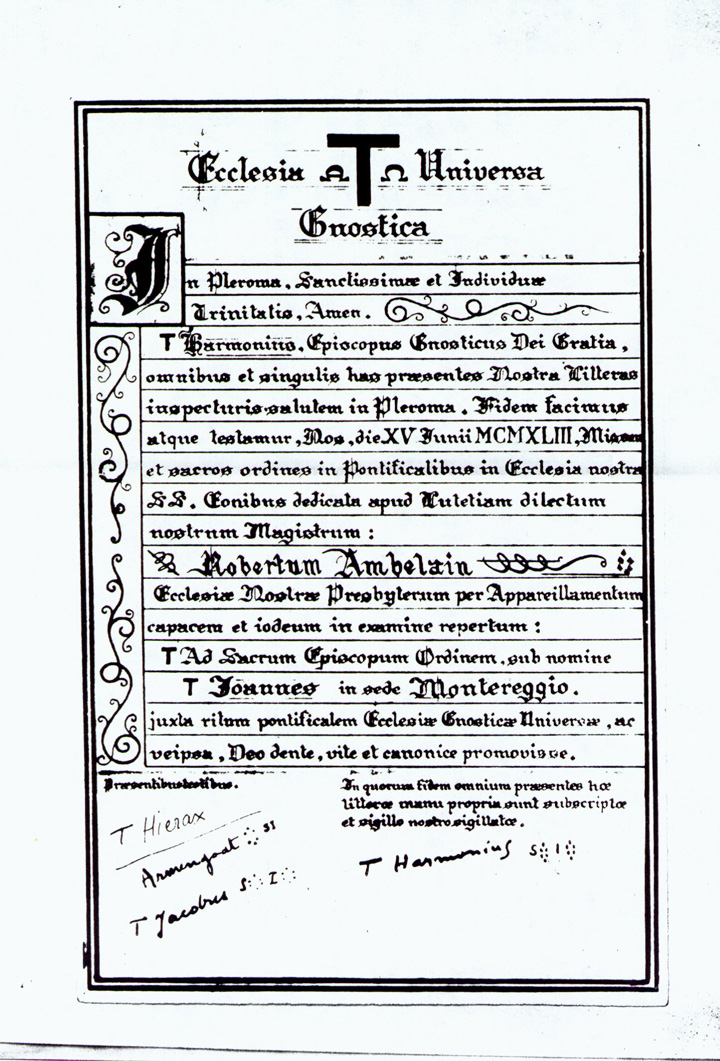 Ecclesia Ω T Ω Universa
Gnostica
In Pleroma, Sanctissimæ et Individuæ
Trinitatis, Amen.
T Harmonius, Episcopus Gnosticus Dei Gratia,
omnibus et singulis has præsentes Nostra Litteras
inspecturis salutem in Pleroma. Fidem facimus
atque testamur, Nos, die XV Junii MCMXLIII, Missam
et sacros ordines in Pontificalibus in Ecclesia nostra
SS. Eonibus dedicata apud Lutetiam dilectum
nostrum Magistrum :
Robertum Ambelain
Ecclesiæ Nostræ Presbyterum per Appareillamentum
capacem et iodeum in examine repertum :
T Ad Sacrum Episcopum Ordinem, sub nomine
T Joannes in sede Montereggio.
juxta ritum pontificalem Ecclesiæ Gnosticæ Universæ, ac
veipsa, Deo dente, vite et canonice promovisse.
Præsentibus testibus.
In quorum fidem omnium præsentes hœ
litteræ manu propria sunt subscriptœ
et sigillo nostro sigillatœ.
T Hierax
Armengaat SI
T Jacobus S I
T Harmonius S I